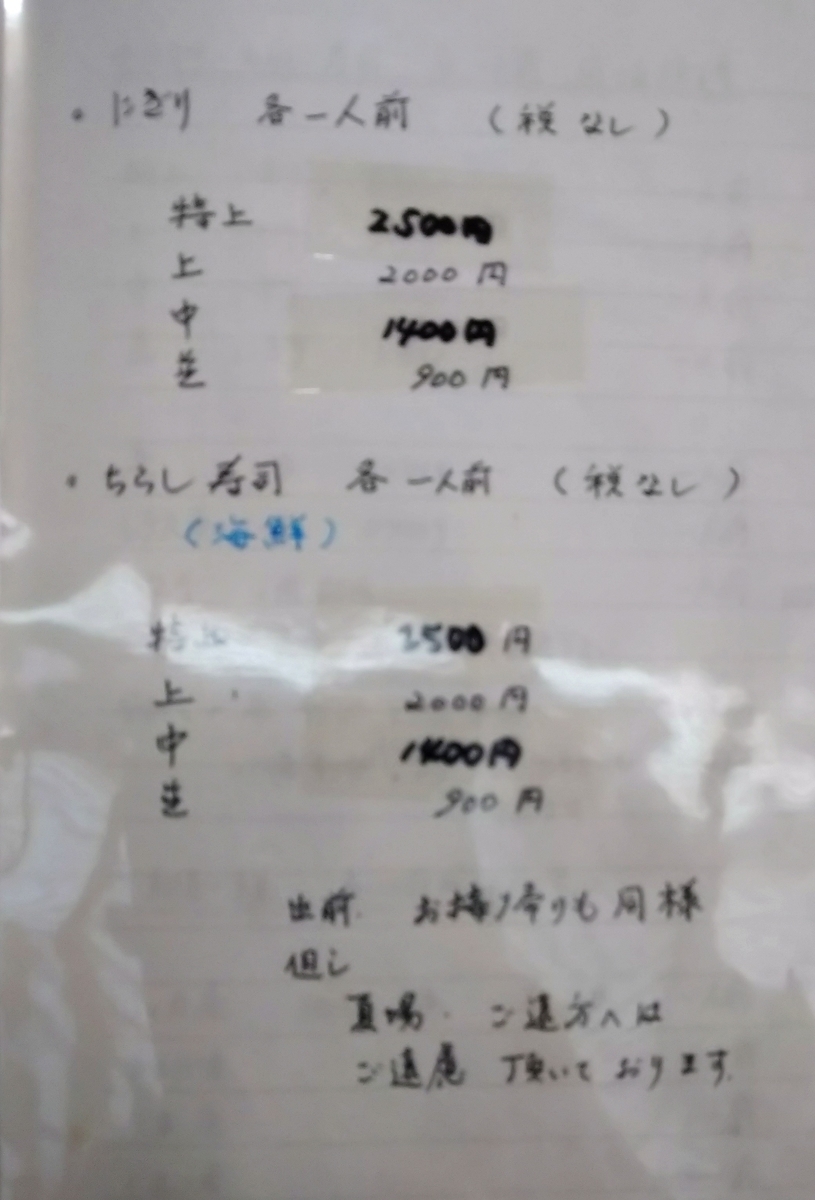 ・にぎり 各一人前 (税なし)
特上 2500円
上 2000円
中 1400円
並 900円
・ちらし寿司 各一人前 (税なし)
(海鮮)
特上 2500円
上 2000円
中 1400円
並 900円
出前. お持ち帰りも同様
但し
夏場. ご遠方へは
ご遠慮 頂いております.